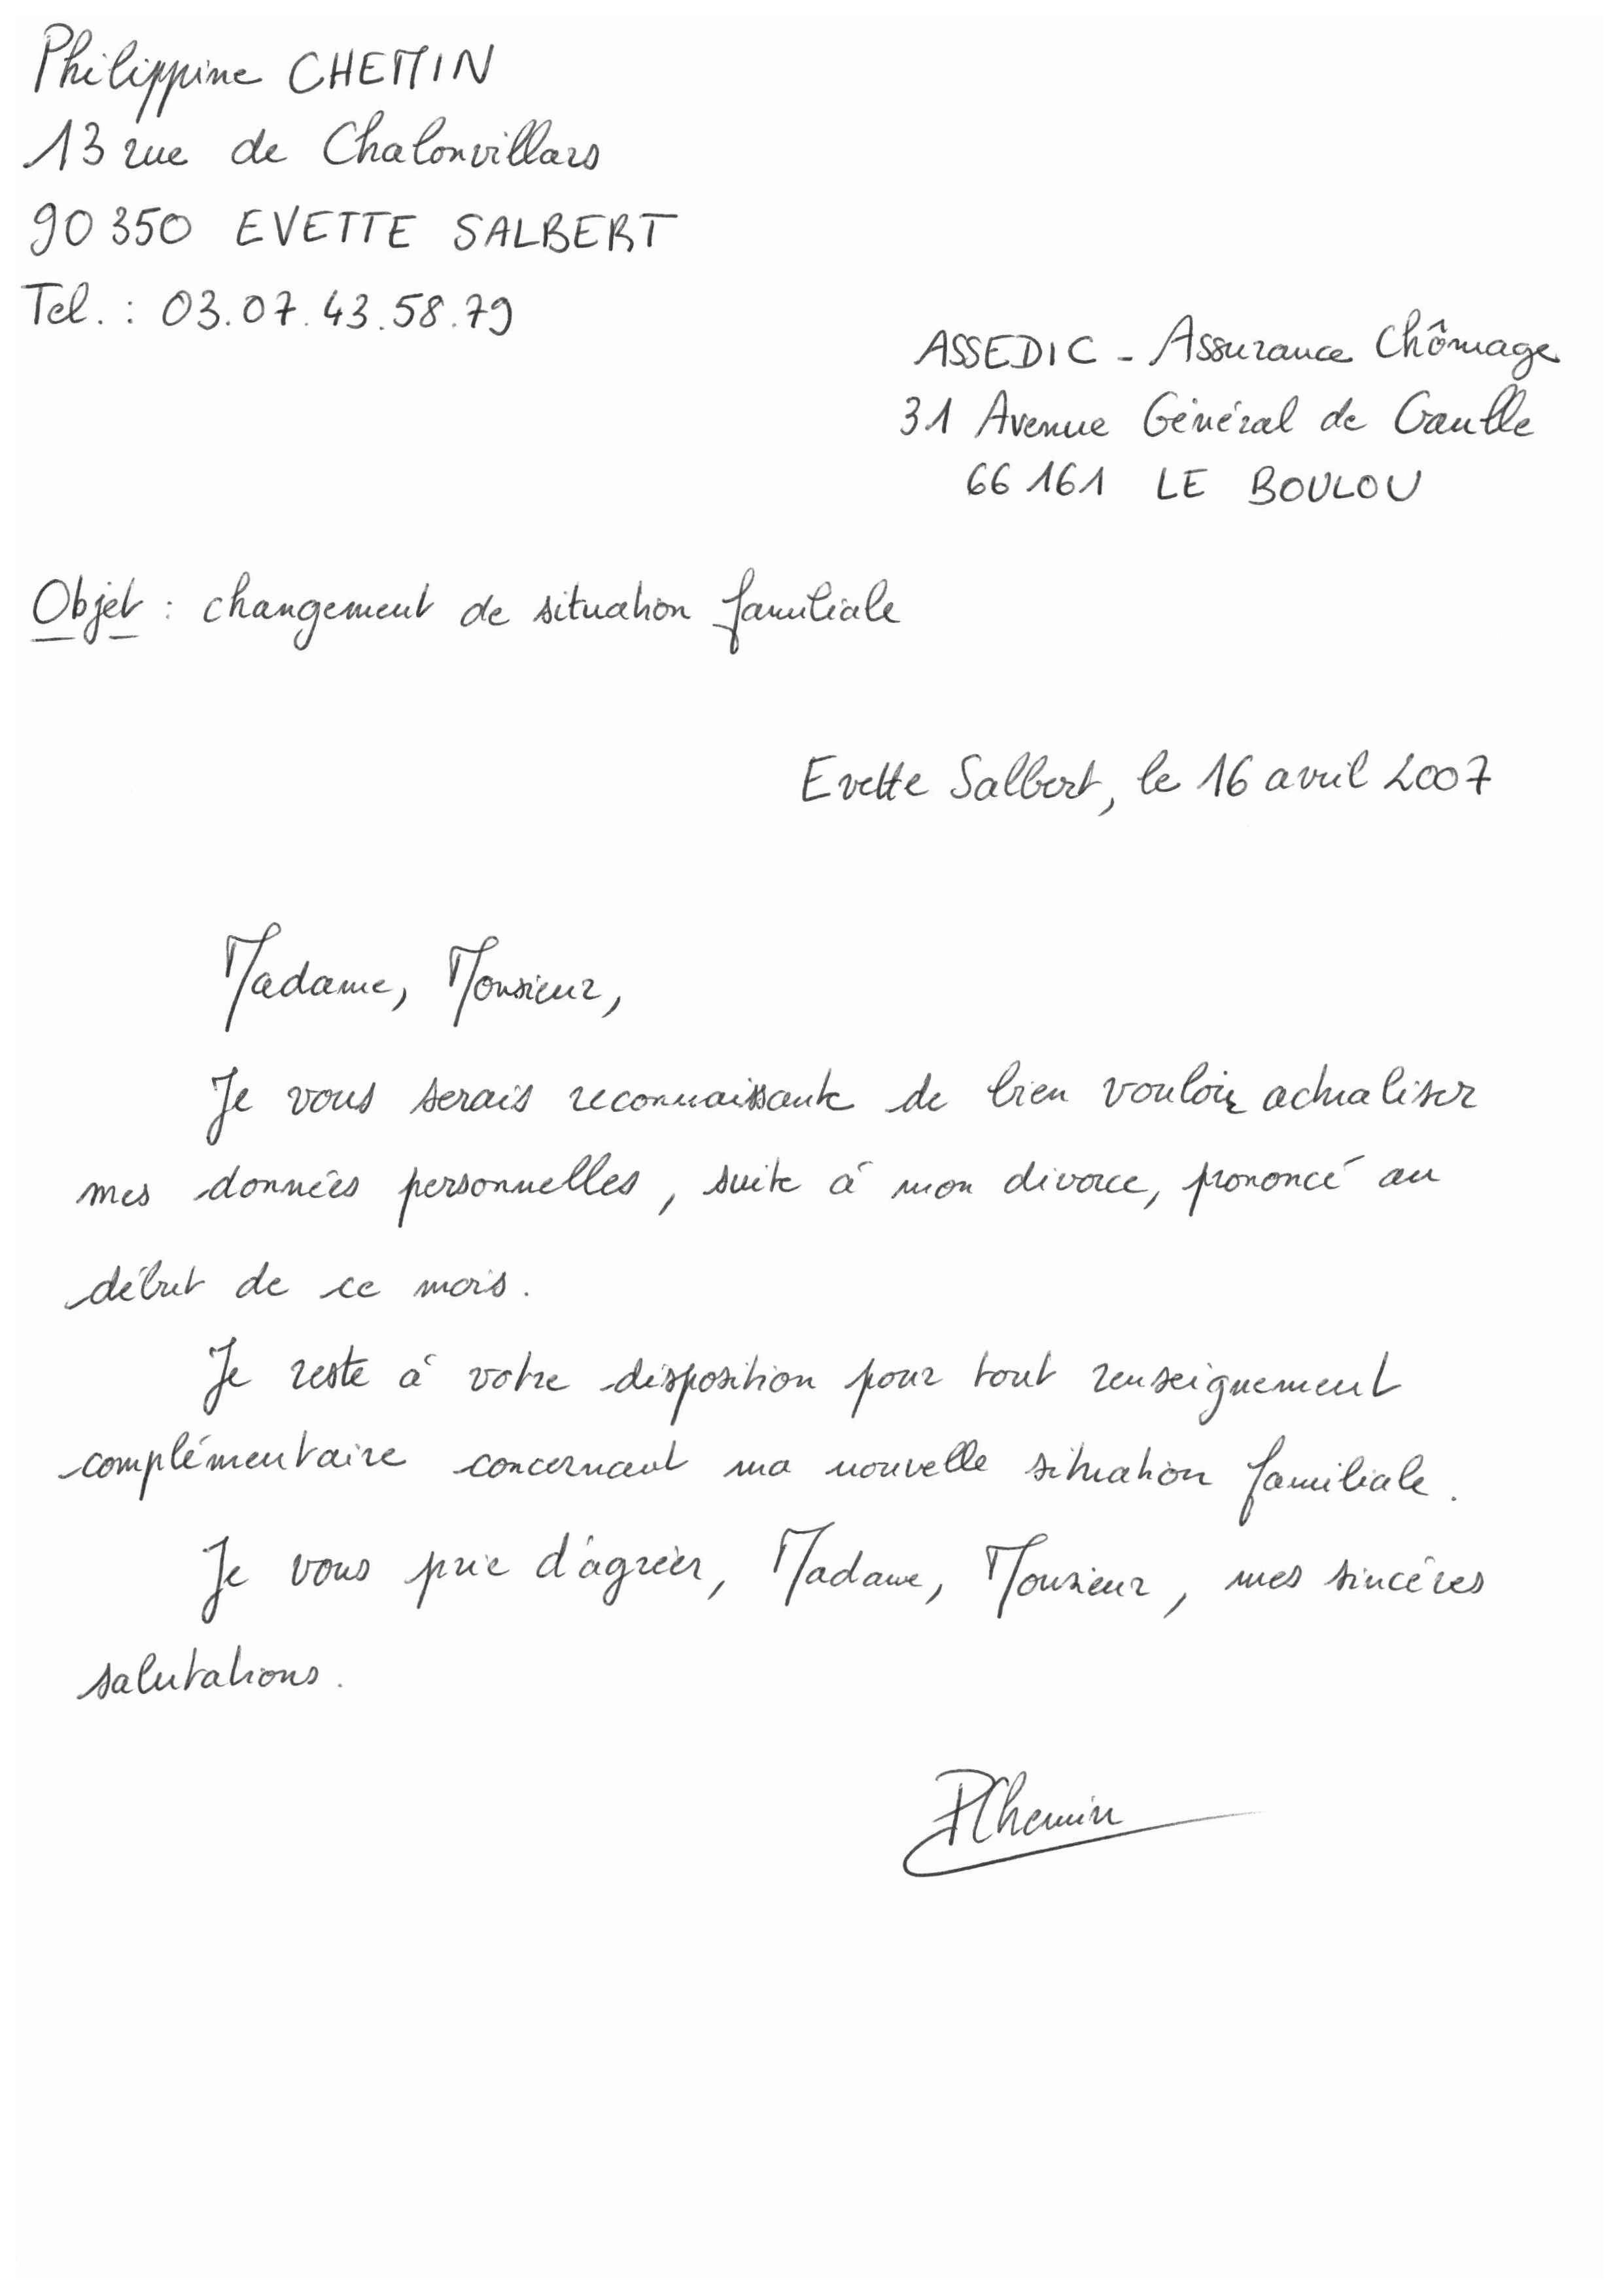 Philippine CHEMIN
13 rue de Chalonvillars
90350 EVETTE SALBERT
Tel. : 03.07.43.58.79
ASSEDIC - Assurance Chômage
31 Avenue Général de Gaulle
66161 LE BOULOU
Objet : changement de situation familiale
Evette Salbert, le 16 avril 2007
Madame, Monsieur,
Je vous serais reconnaissante de bien vouloir actualiser
mes données personnelles, suite à mon divorce, prononcé au
début de ce mois.
Je reste à votre disposition pour tout renseignement
complémentaire concernant ma nouvelle situation familiale.
Je vous prie d'agréer, Madame, Monsieur, mes sincères
salutations.
PChemin